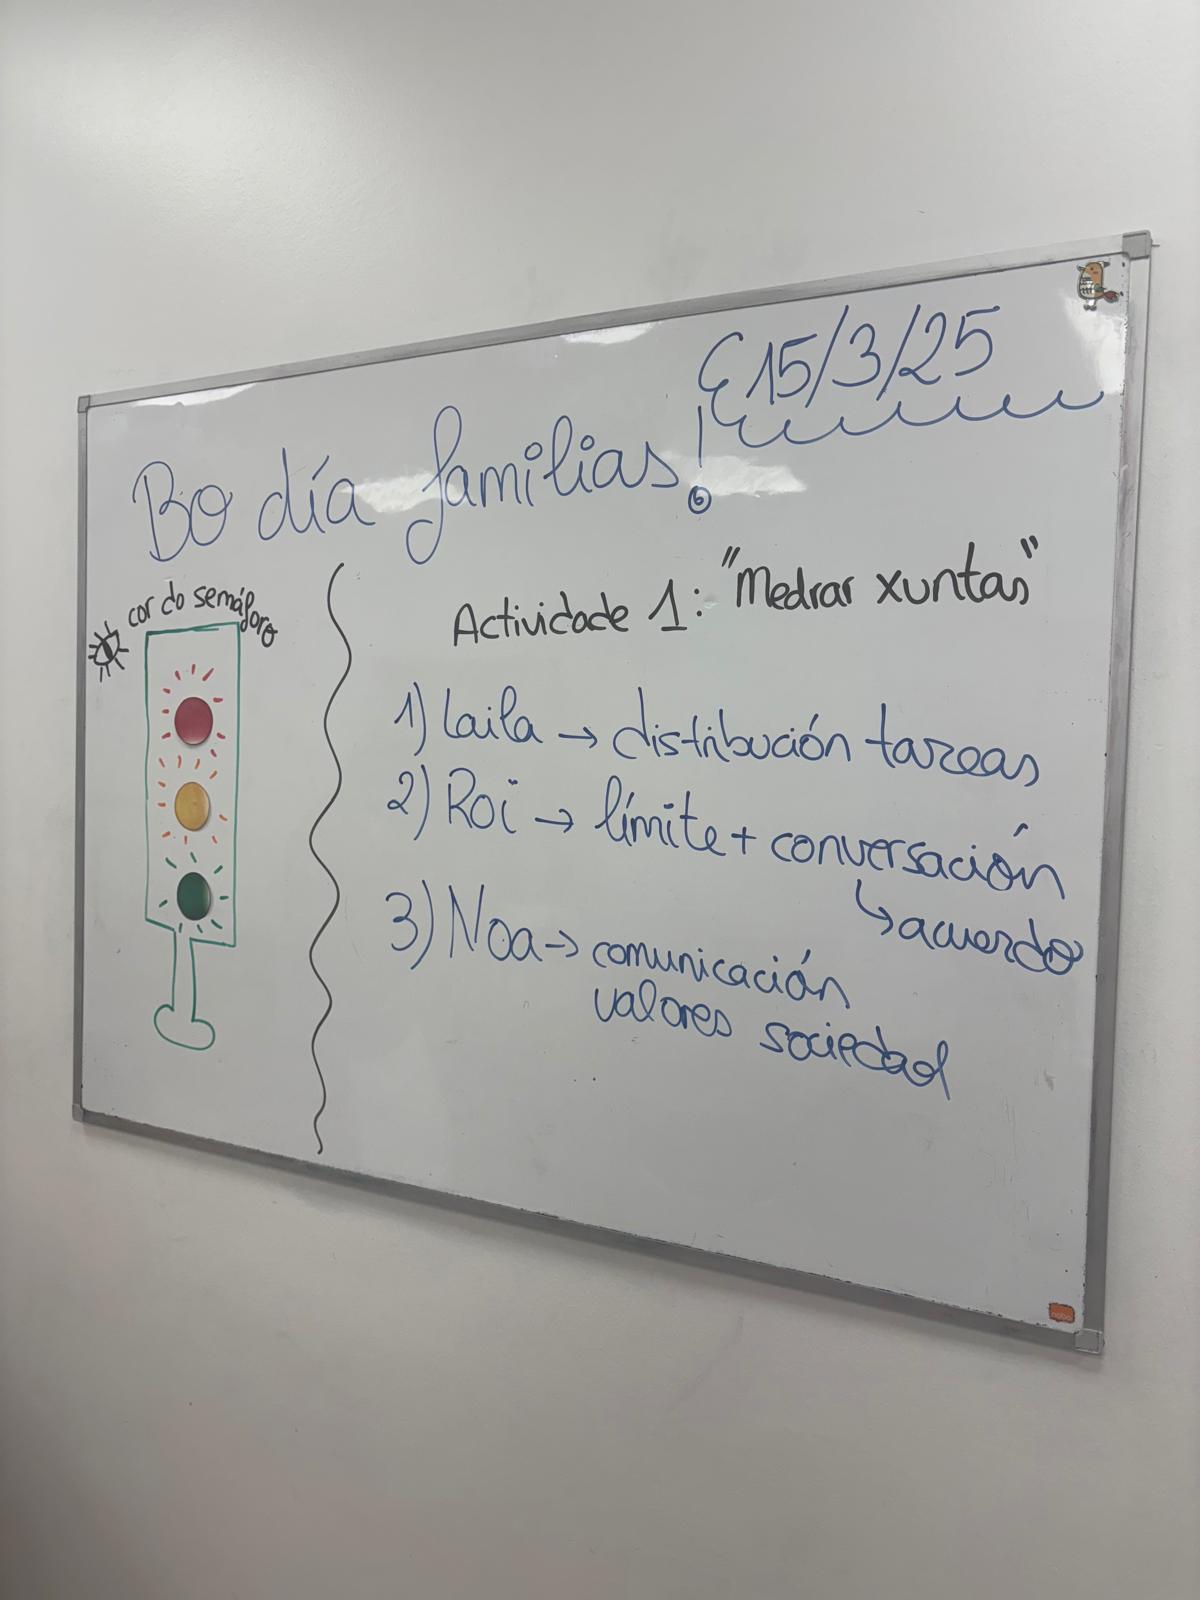 15/3/25
Bo día familias!
cor do semáforo
Actividade 1: "Medrar xuntas"
1) Laila → distribución tareas
2) Roi → límite + conversación
↳ acuerdo
3) Noa → comunicación
valores sociedad
nobo